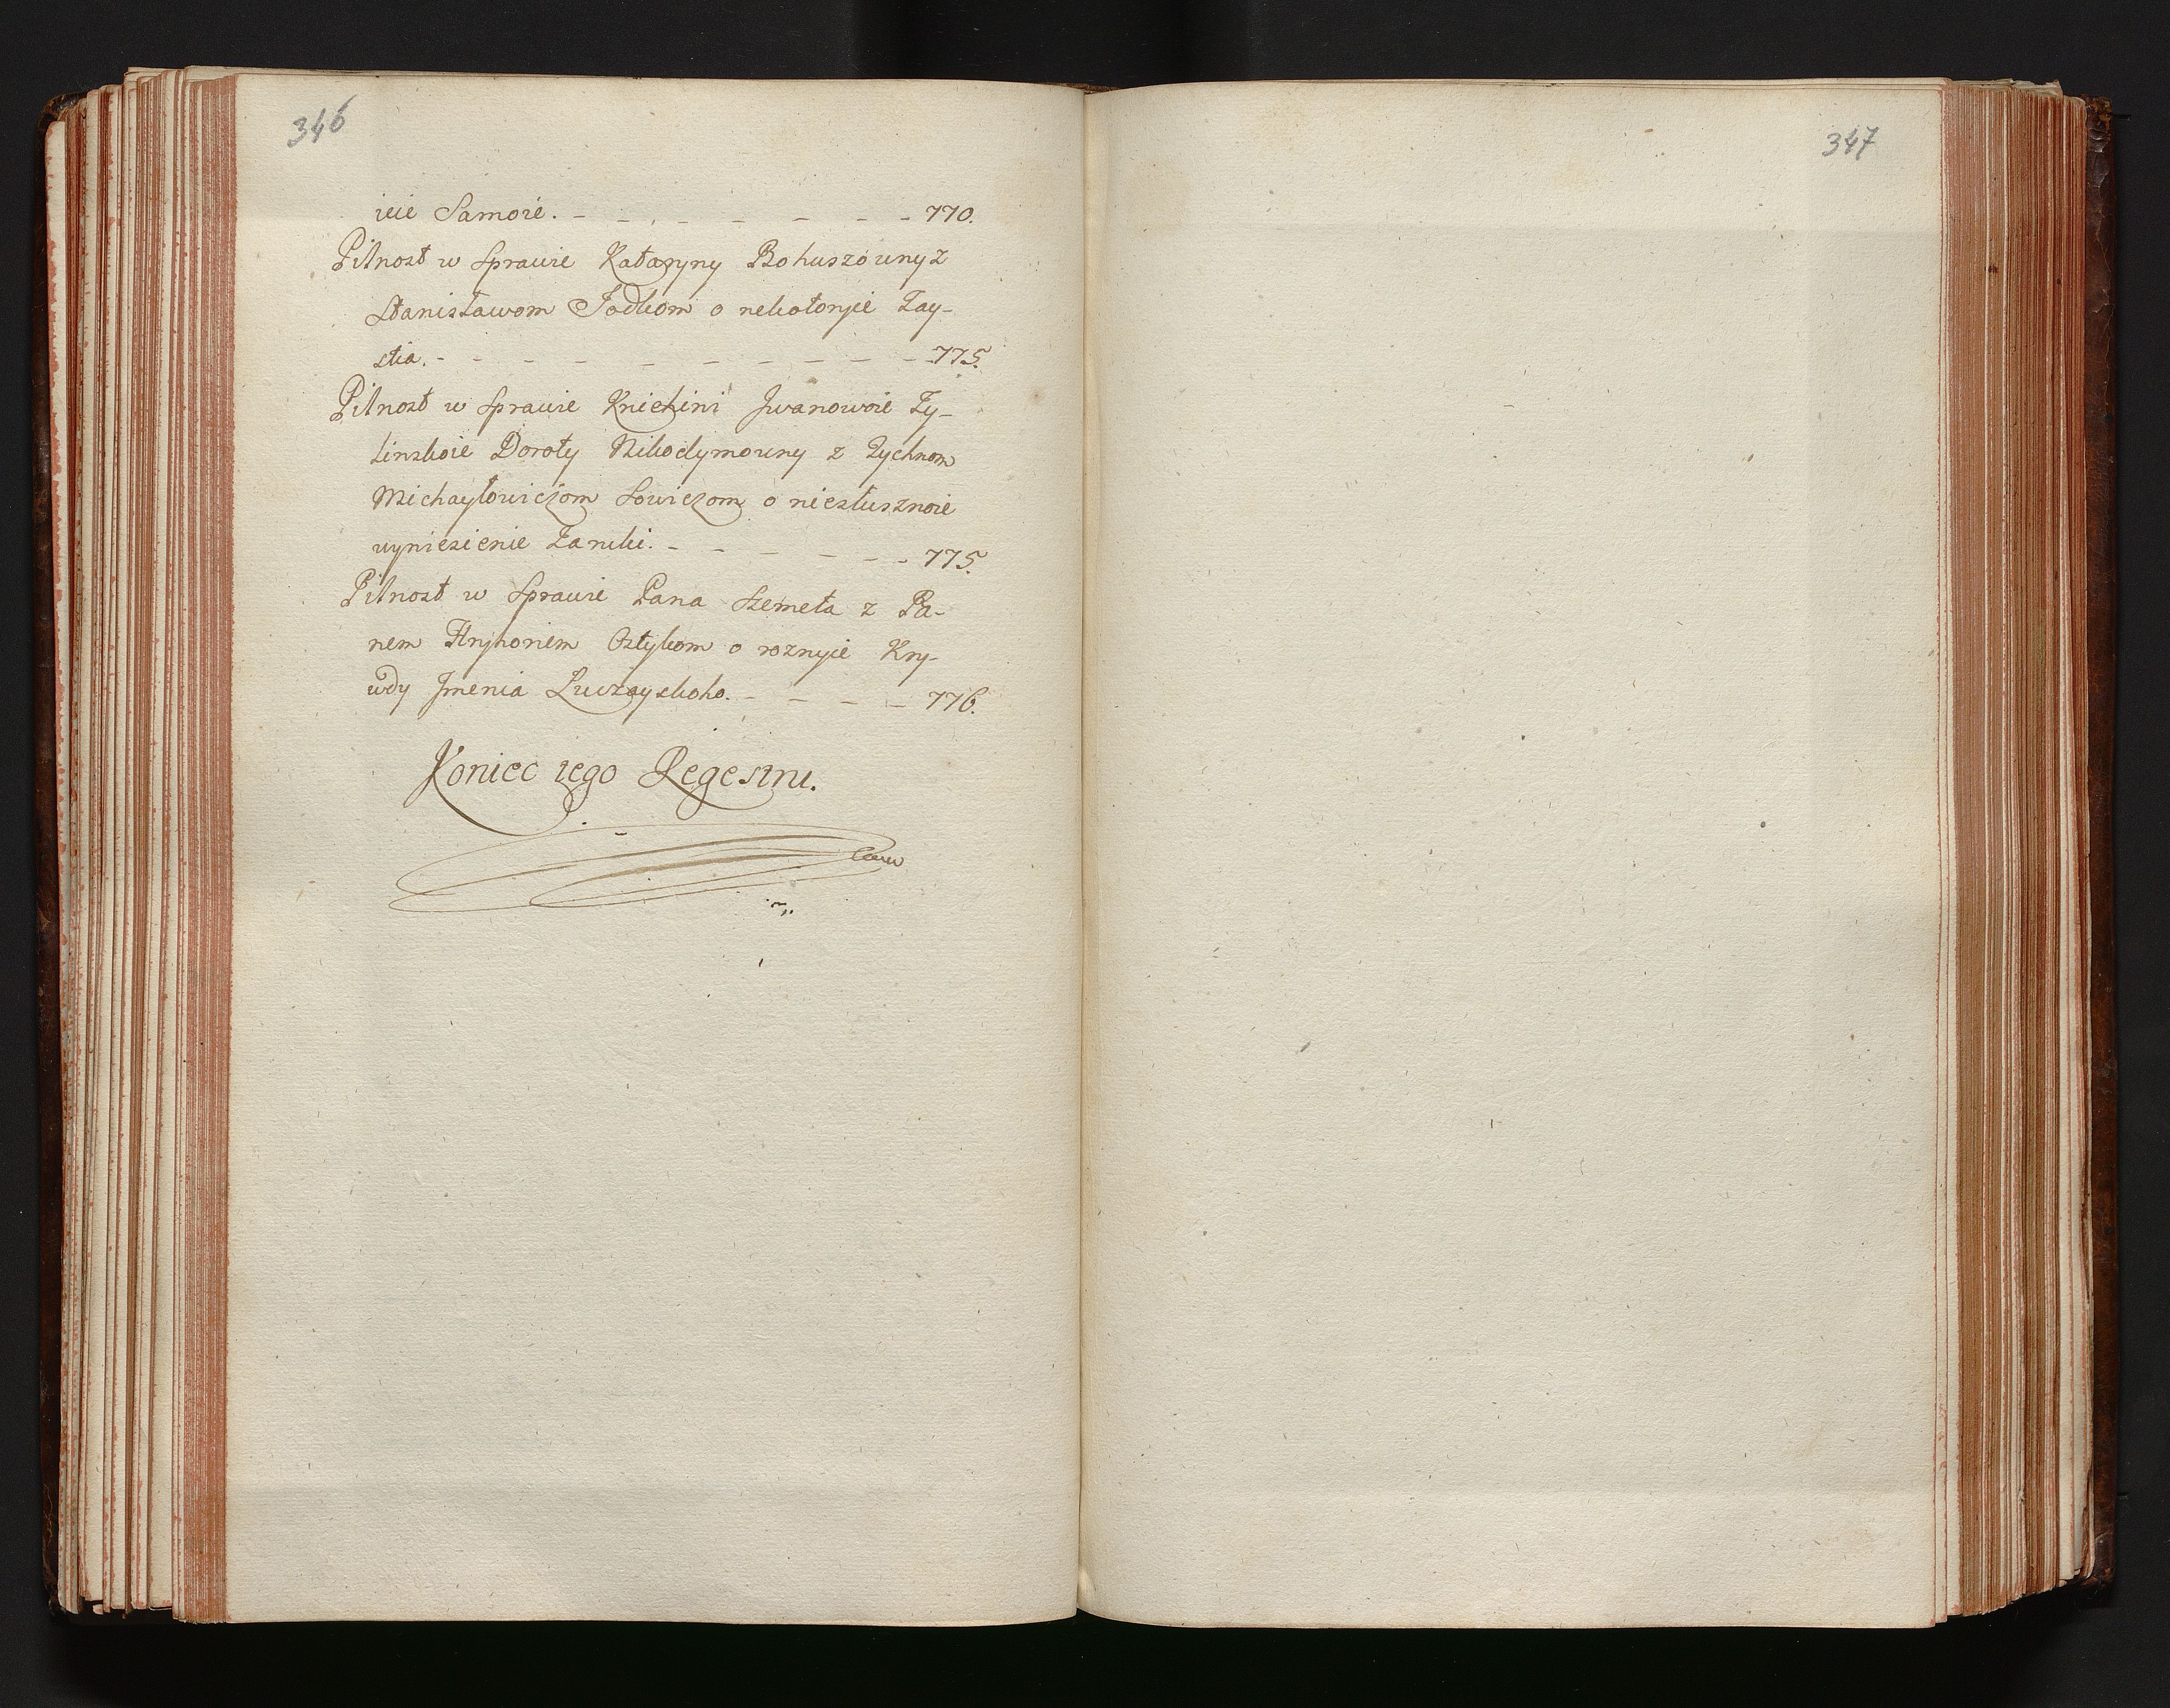 346
ieie Samoie. - - - - - - - 770.
Pilnost w Sprawie Katarzyny Bohuszowny z
Stanisławom Jodkom o nekotoryie Zay-
stia. - - - - - - - - - - 775.
Pilnost w Sprawie Kniehini Jwanowoie Zy-
linskoie Doroty Nikodymowny z Zychnom
Michayłowiczom Sowiczom o niesłusznoie
wyniesienie Zamki. - - - - - - - 775.
Pilnost w Sprawie Pana Szemeta z Pa-
nem Hryhoriem Ostykom o roznyie Kry-
wdy Jmenia Luczayskoho. - - - - 776.
Koniec tego Regestru.
347